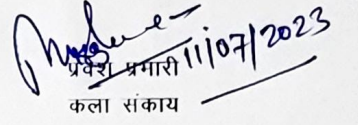 11/07/2023
प्रवेश प्रभारी
कला संकाय